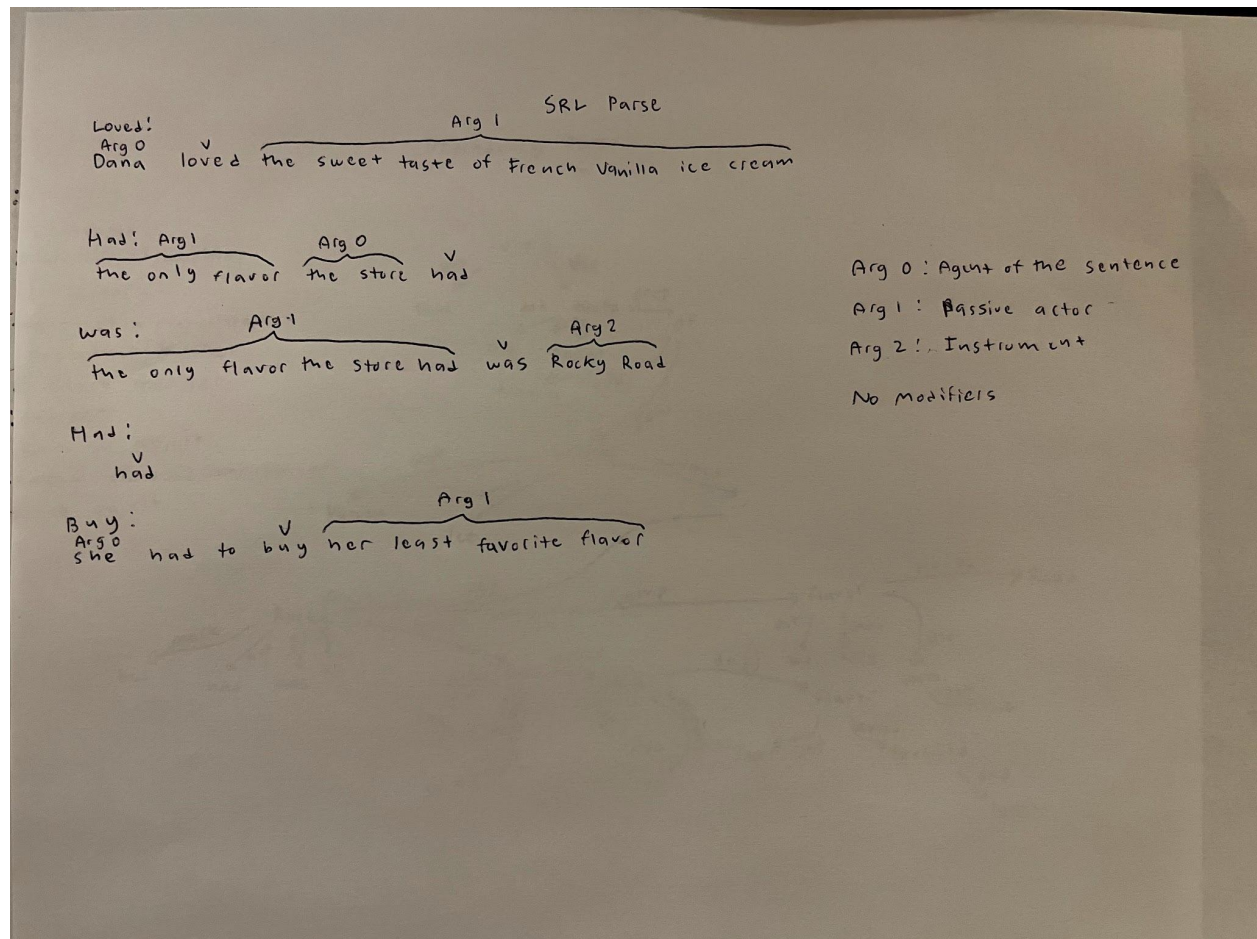 SRL Parse
Loved:
Arg 1
Arg 0 V
Dana loved the sweet taste of French Vanilla ice cream
Had: Arg1 Arg 0 V
the only flavor the store had
was: Arg 1 V Arg 2
the only flavor the store had was Rocky Road
Had:
V
had
Buy: Arg 1
Arg 0 V
she had to buy her least favorite flavor
Arg 0: Agent of the sentence
Arg 1: Passive actor
Arg 2: Instrument
No modifiers